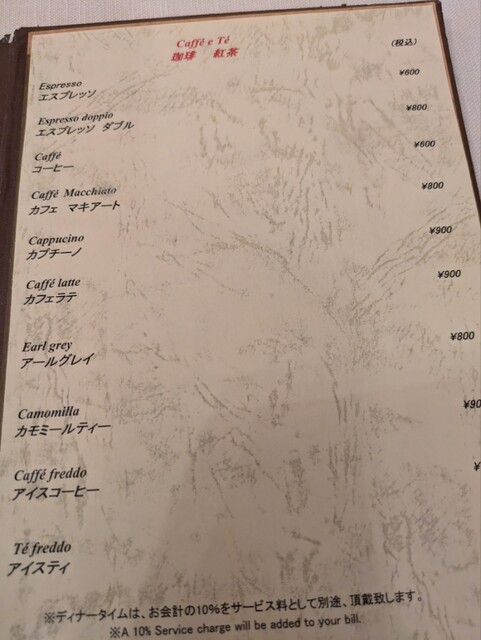 Caffé e Té
珈琲 紅茶 (税込)
Espresso ¥600
エスプレッソ
Espresso doppio ¥800
エスプレッソ ダブル
Caffé ¥600
コーヒー
Caffé Macchiato ¥800
カフェ マキアート
Cappucino ¥900
カプチーノ
Caffé latte ¥900
カフェラテ
Earl grey ¥800
アールグレイ
Camomilla
カモミールティー
Caffé freddo
アイスコーヒー
Té freddo
アイスティ
※ディナータイムは、お会計の10%をサービス料として別途、頂戴致します。
※A 10% Service charge will be added to your bill.